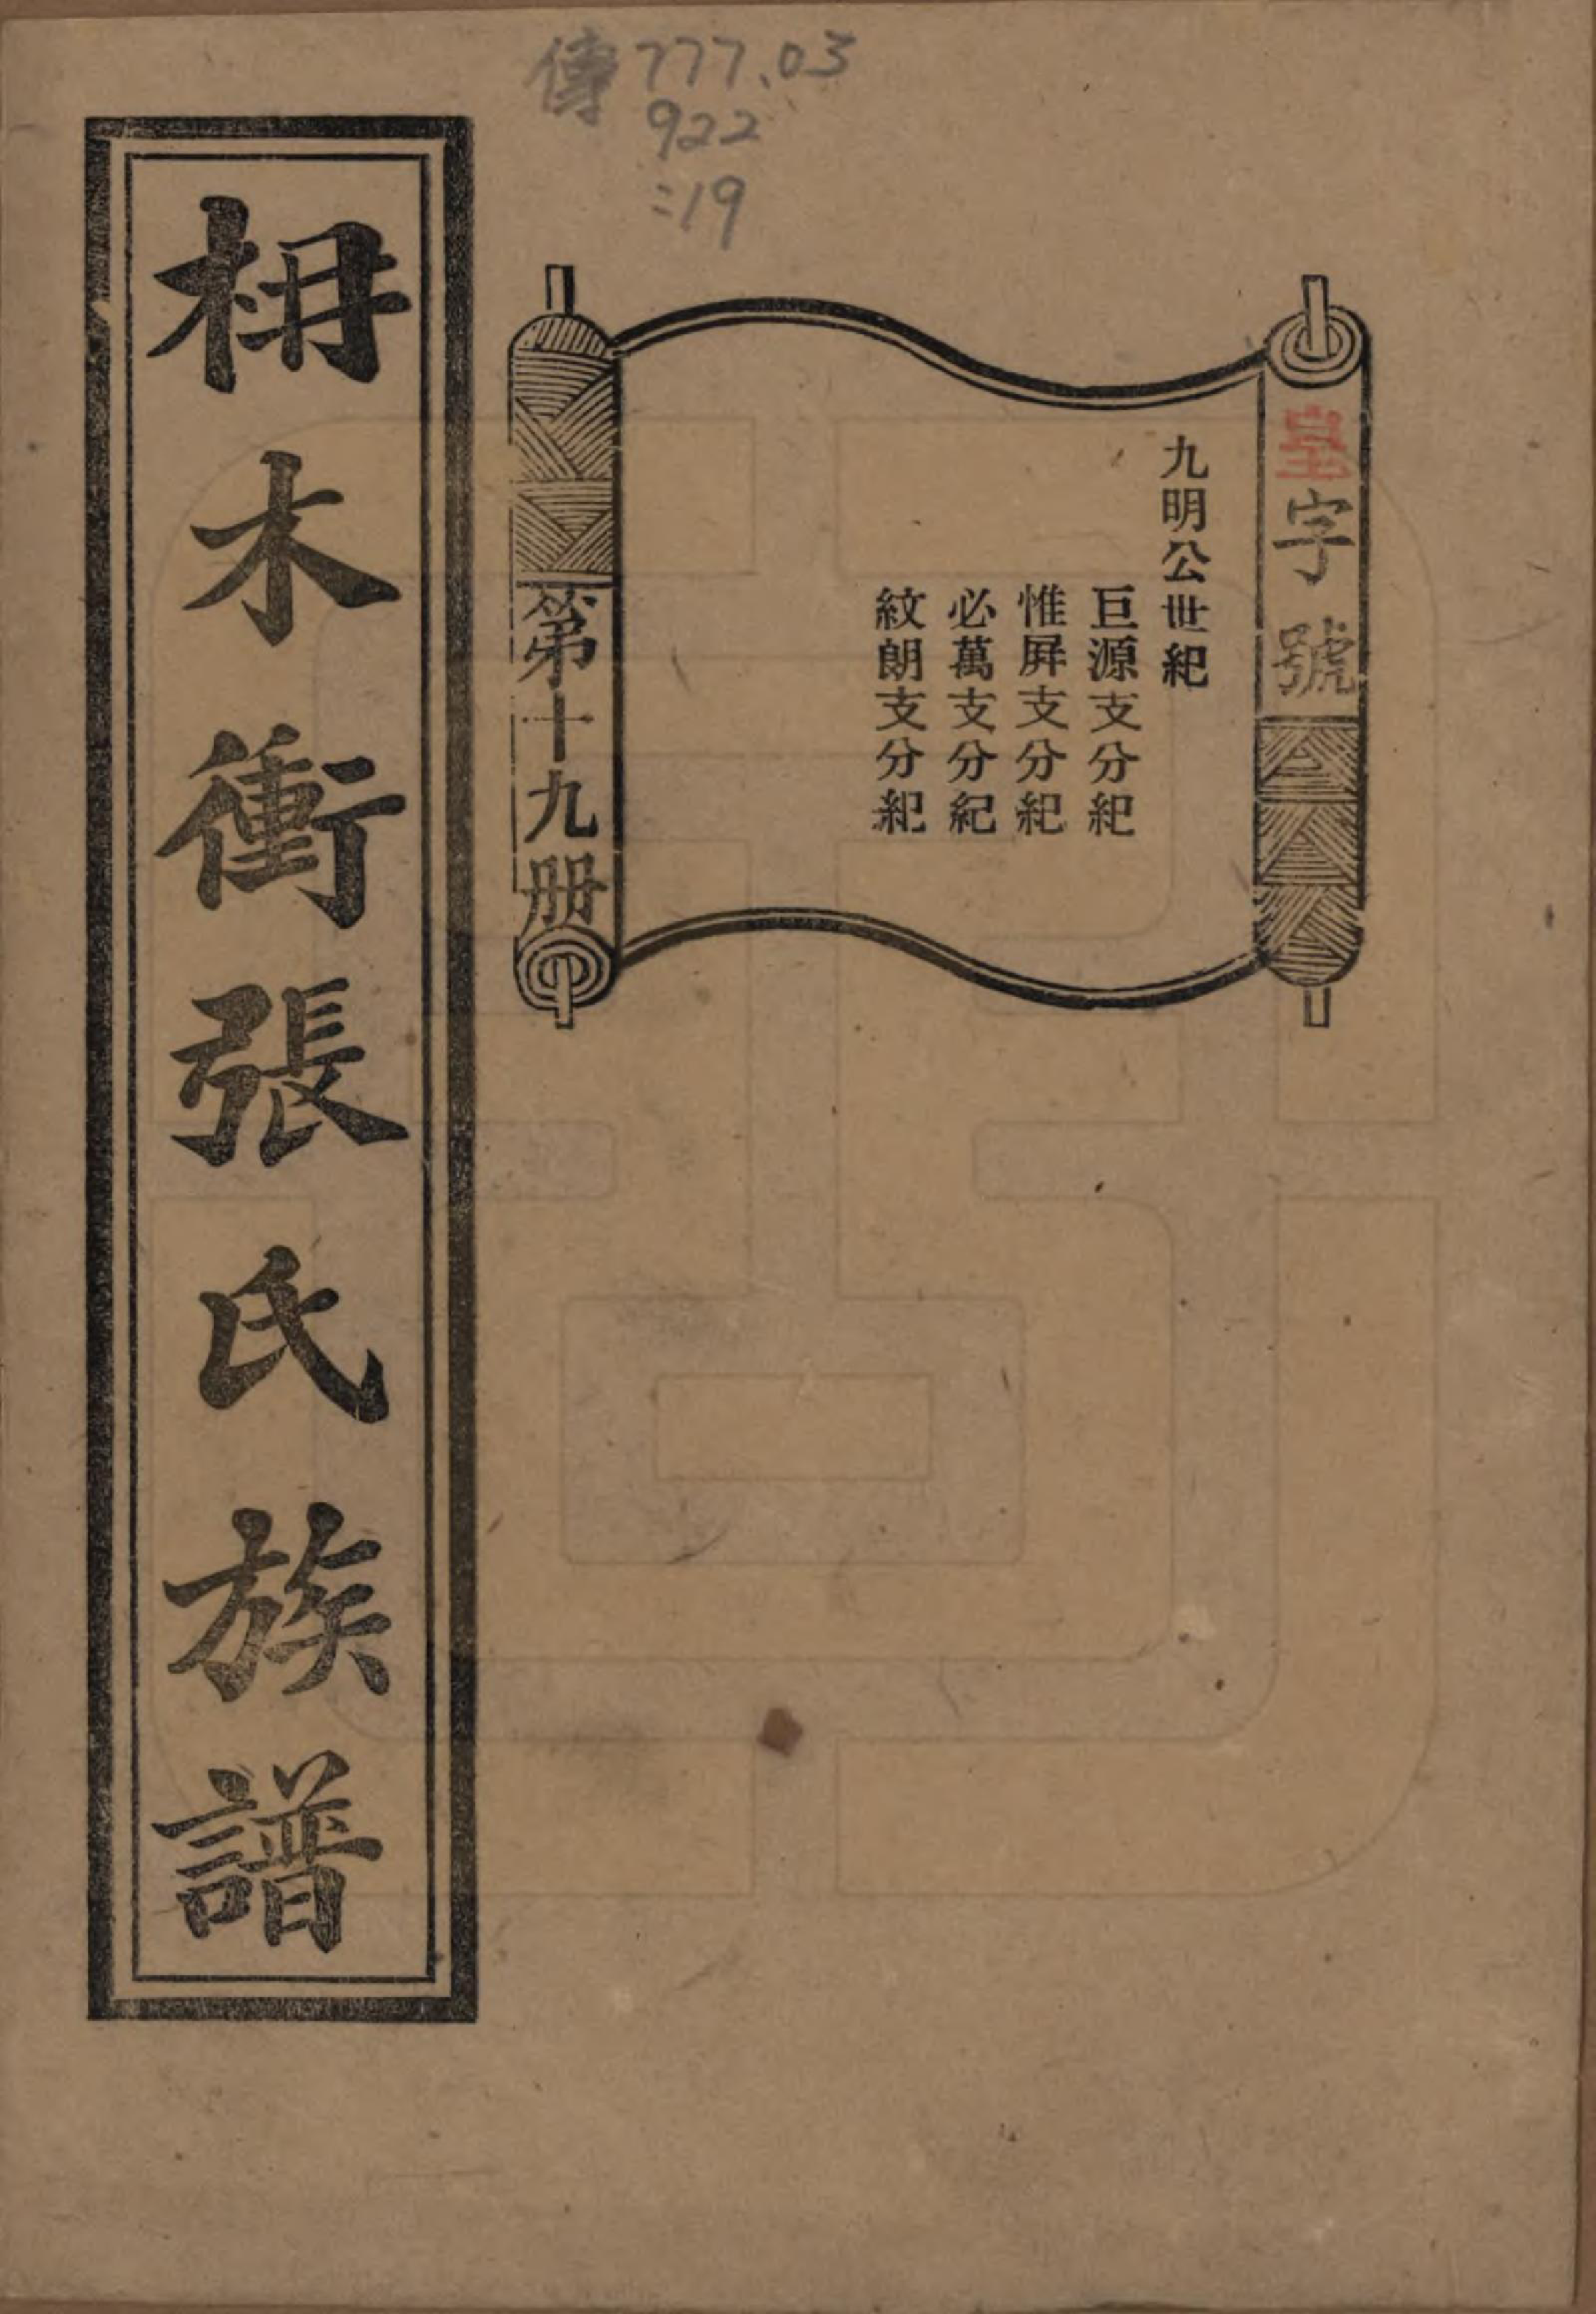 傳777.03
922
:19
皇字號
九明公世紀
巨源支分紀
惟屛支分紀
必萬支分紀
紋朗支分紀
第十九册
枏木衝張氏族譜